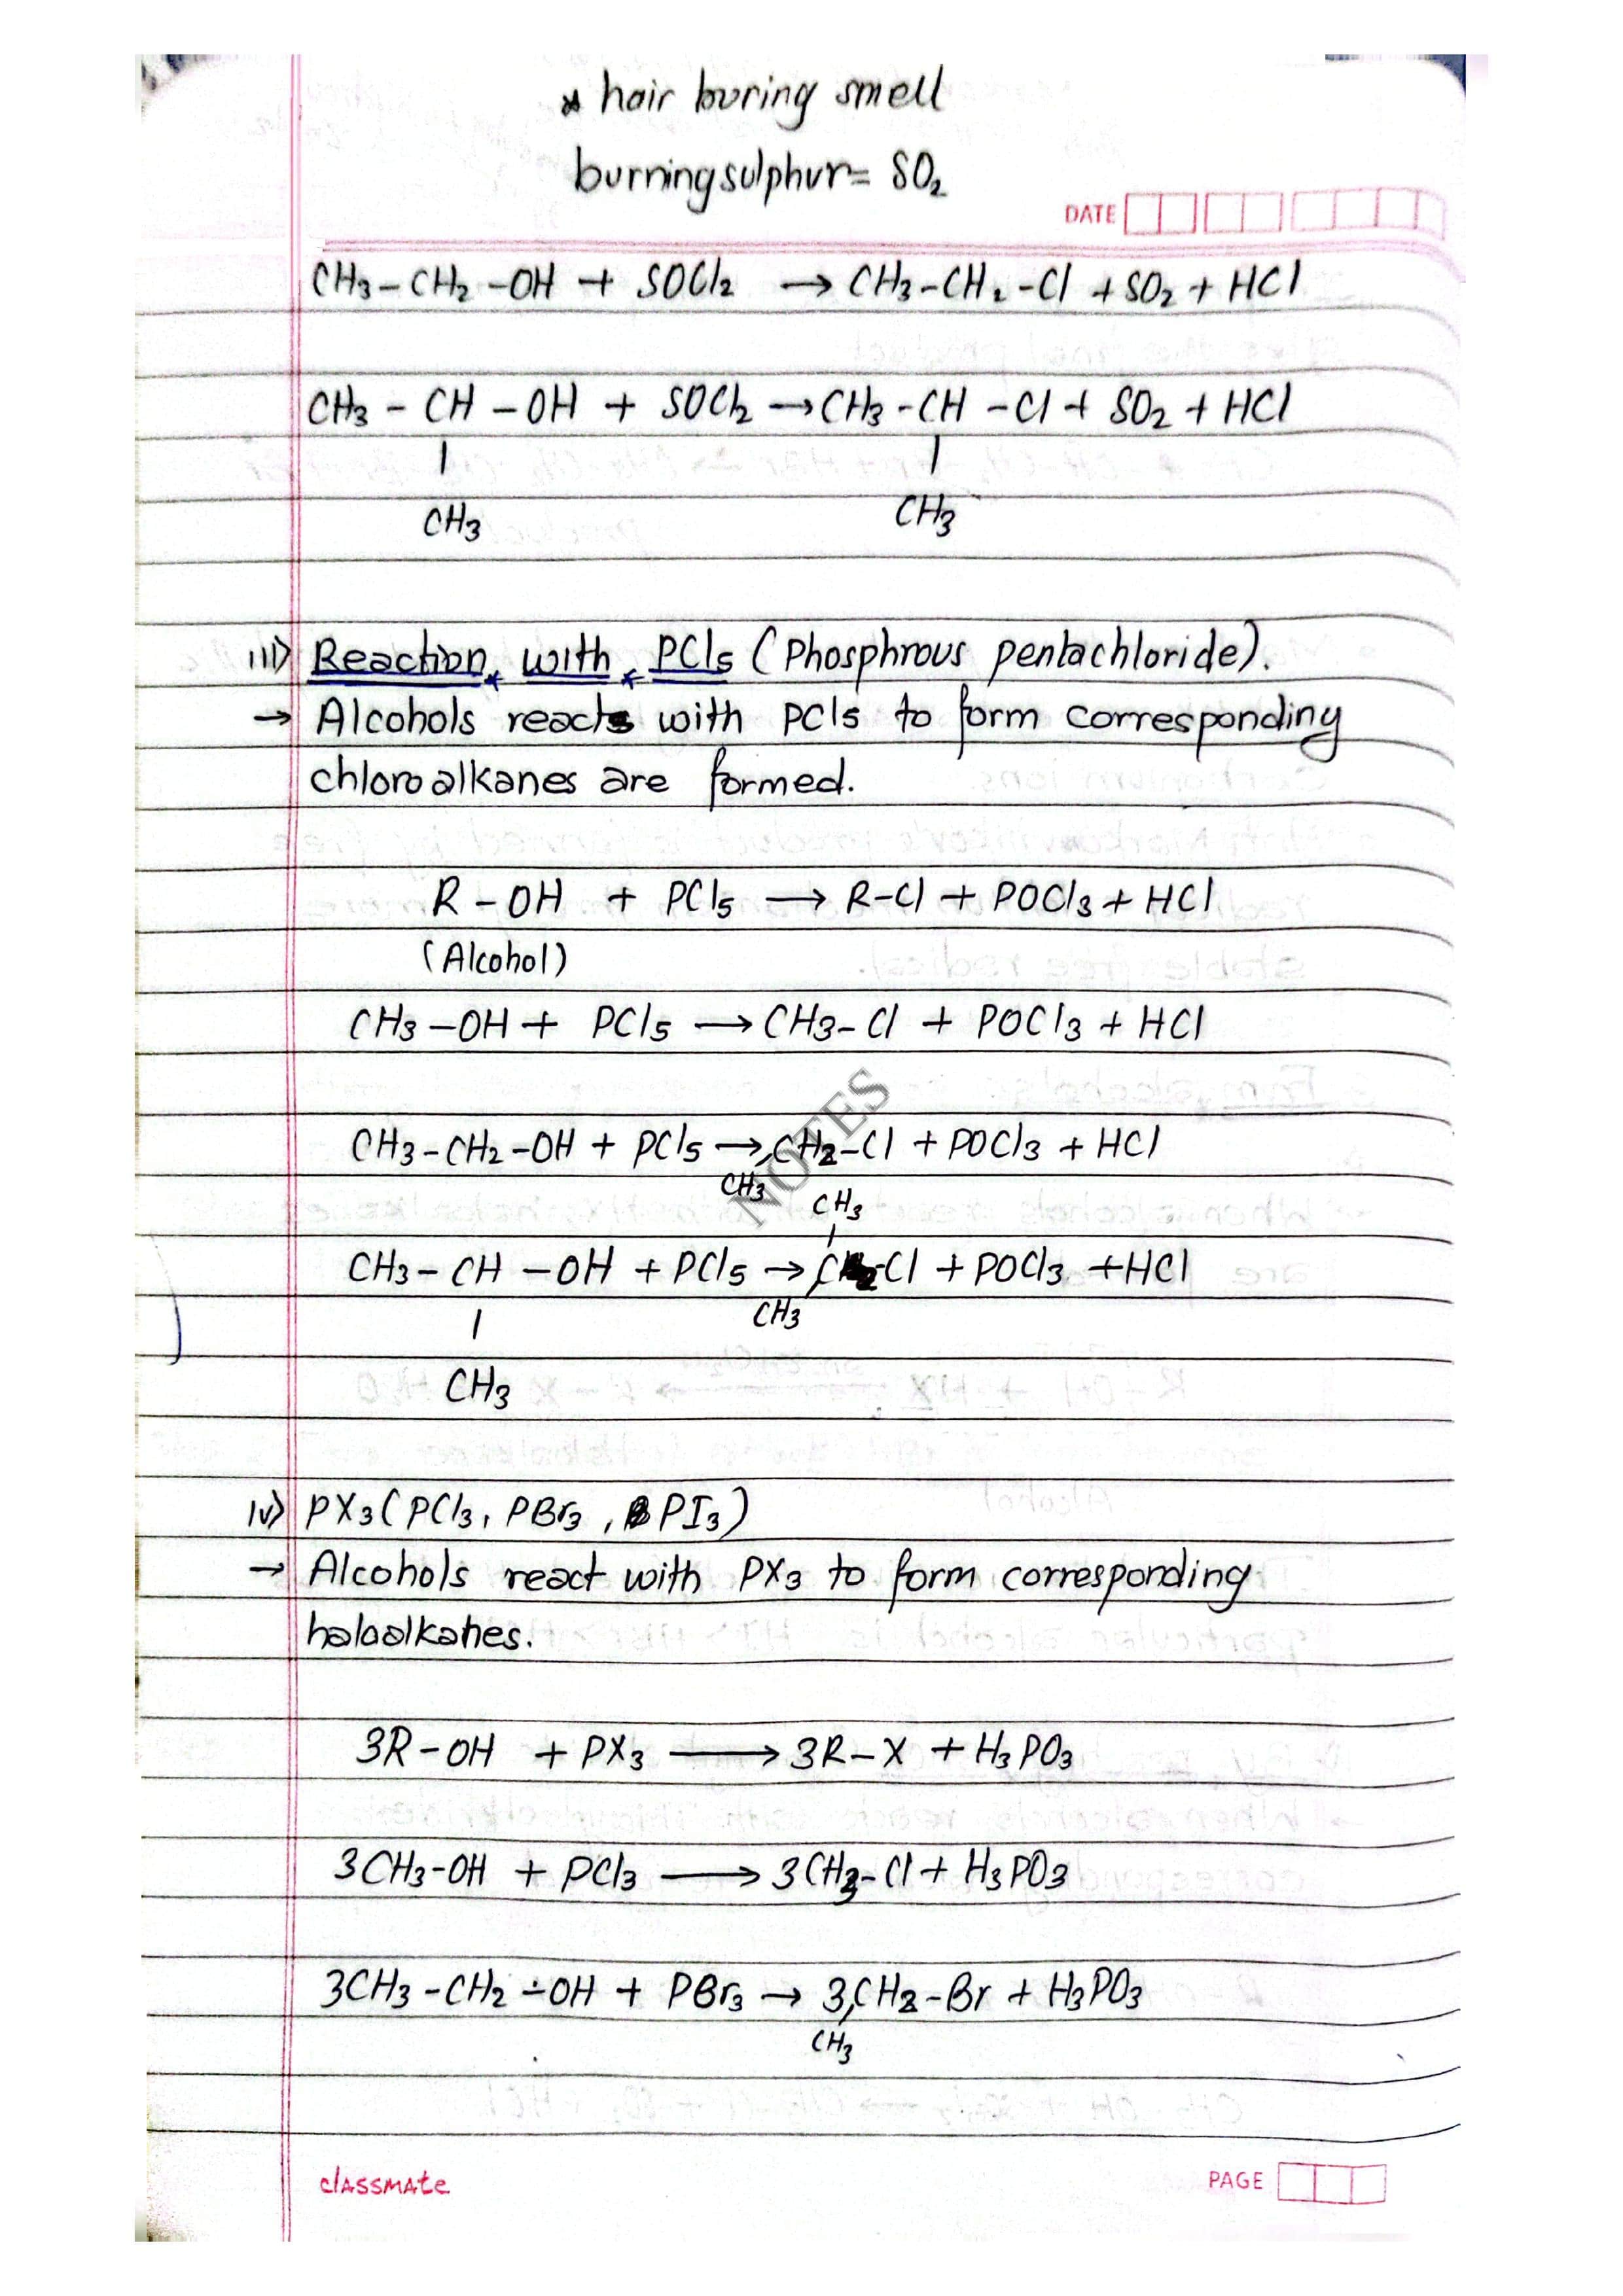 * hair buring smell
burning sulphur = SO₂
DATE
CH₃ – CH₂ – OH + SOCl₂ → CH₃ – CH₂ – Cl + SO₂ + HCl
CH₃ – CH – OH + SOCl₂ → CH₃ – CH – Cl + SO₂ + HCl
| |
CH₃ CH₃
iii) Reaction with PCl₅ (Phosphrous pentachloride).
→ Alcohols reacts with PCl₅ to form corresponding
chloroalkanes are formed.
R – OH + PCl₅ → R–Cl + POCl₃ + HCl
(Alcohol)
CH₃ – OH + PCl₅ → CH₃ – Cl + POCl₃ + HCl
NOTES
CH₃ – CH₂ – OH + PCl₅ → CH₂ – Cl + POCl₃ + HCl
CH₃
CH₃
CH₃ – CH – OH + PCl₅ → CH-Cl + POCl₃ + HCl
| CH₃
CH₃
iv) PX₃ (PCl₃, PBr₃, PI₃)
→ Alcohols react with PX₃ to form corresponding
haloalkanes.
3R – OH + PX₃ → 3R – X + H₃PO₃
3CH₃ – OH + PCl₃ → 3CH₃ – Cl + H₃PO₃
3CH₃ – CH₂ – OH + PBr₃ → 3CH₂ – Br + H₃PO₃
CH₃
classmate
PAGE